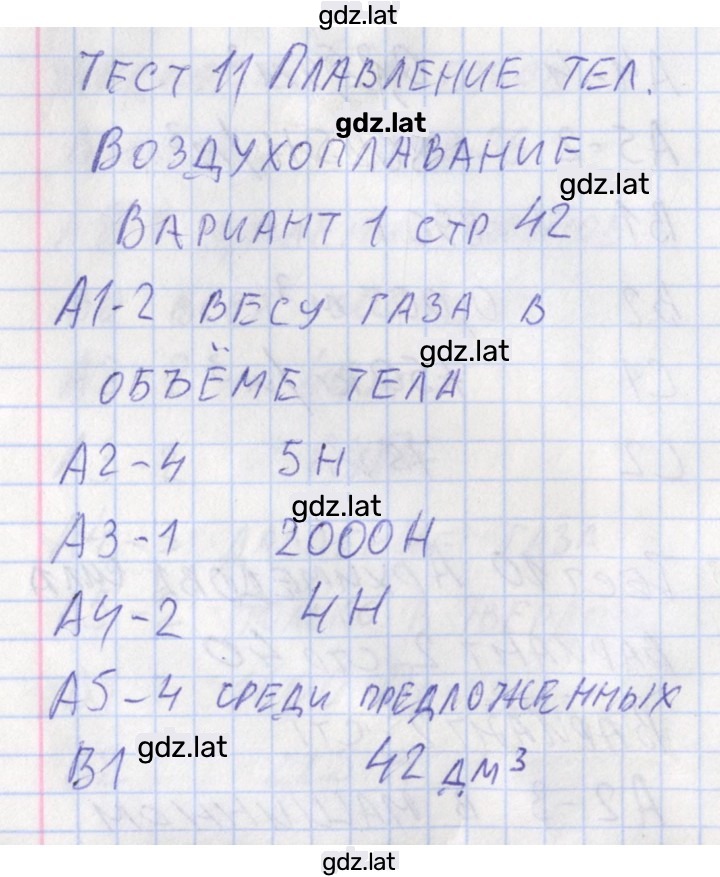 gdz.lat
ТЕСТ 11 ПЛАВЛЕНИЕ ТЕЛ.
gdz.lat
ВОЗДУХОПЛАВАНИЕ
gdz.lat
ВАРИАНТ 1 СТР 42
А1-2 ВЕСУ ГАЗА В
gdz.lat
ОБЪЁМЕ ТЕЛА
А2-4 5Н
gdz.lat
А3-1 2000Н
А4-2 4Н
А5-4 СРЕДИ ПРЕДЛОЖЕННЫХ
gdz.lat
В1 42 дм³
gdz.lat